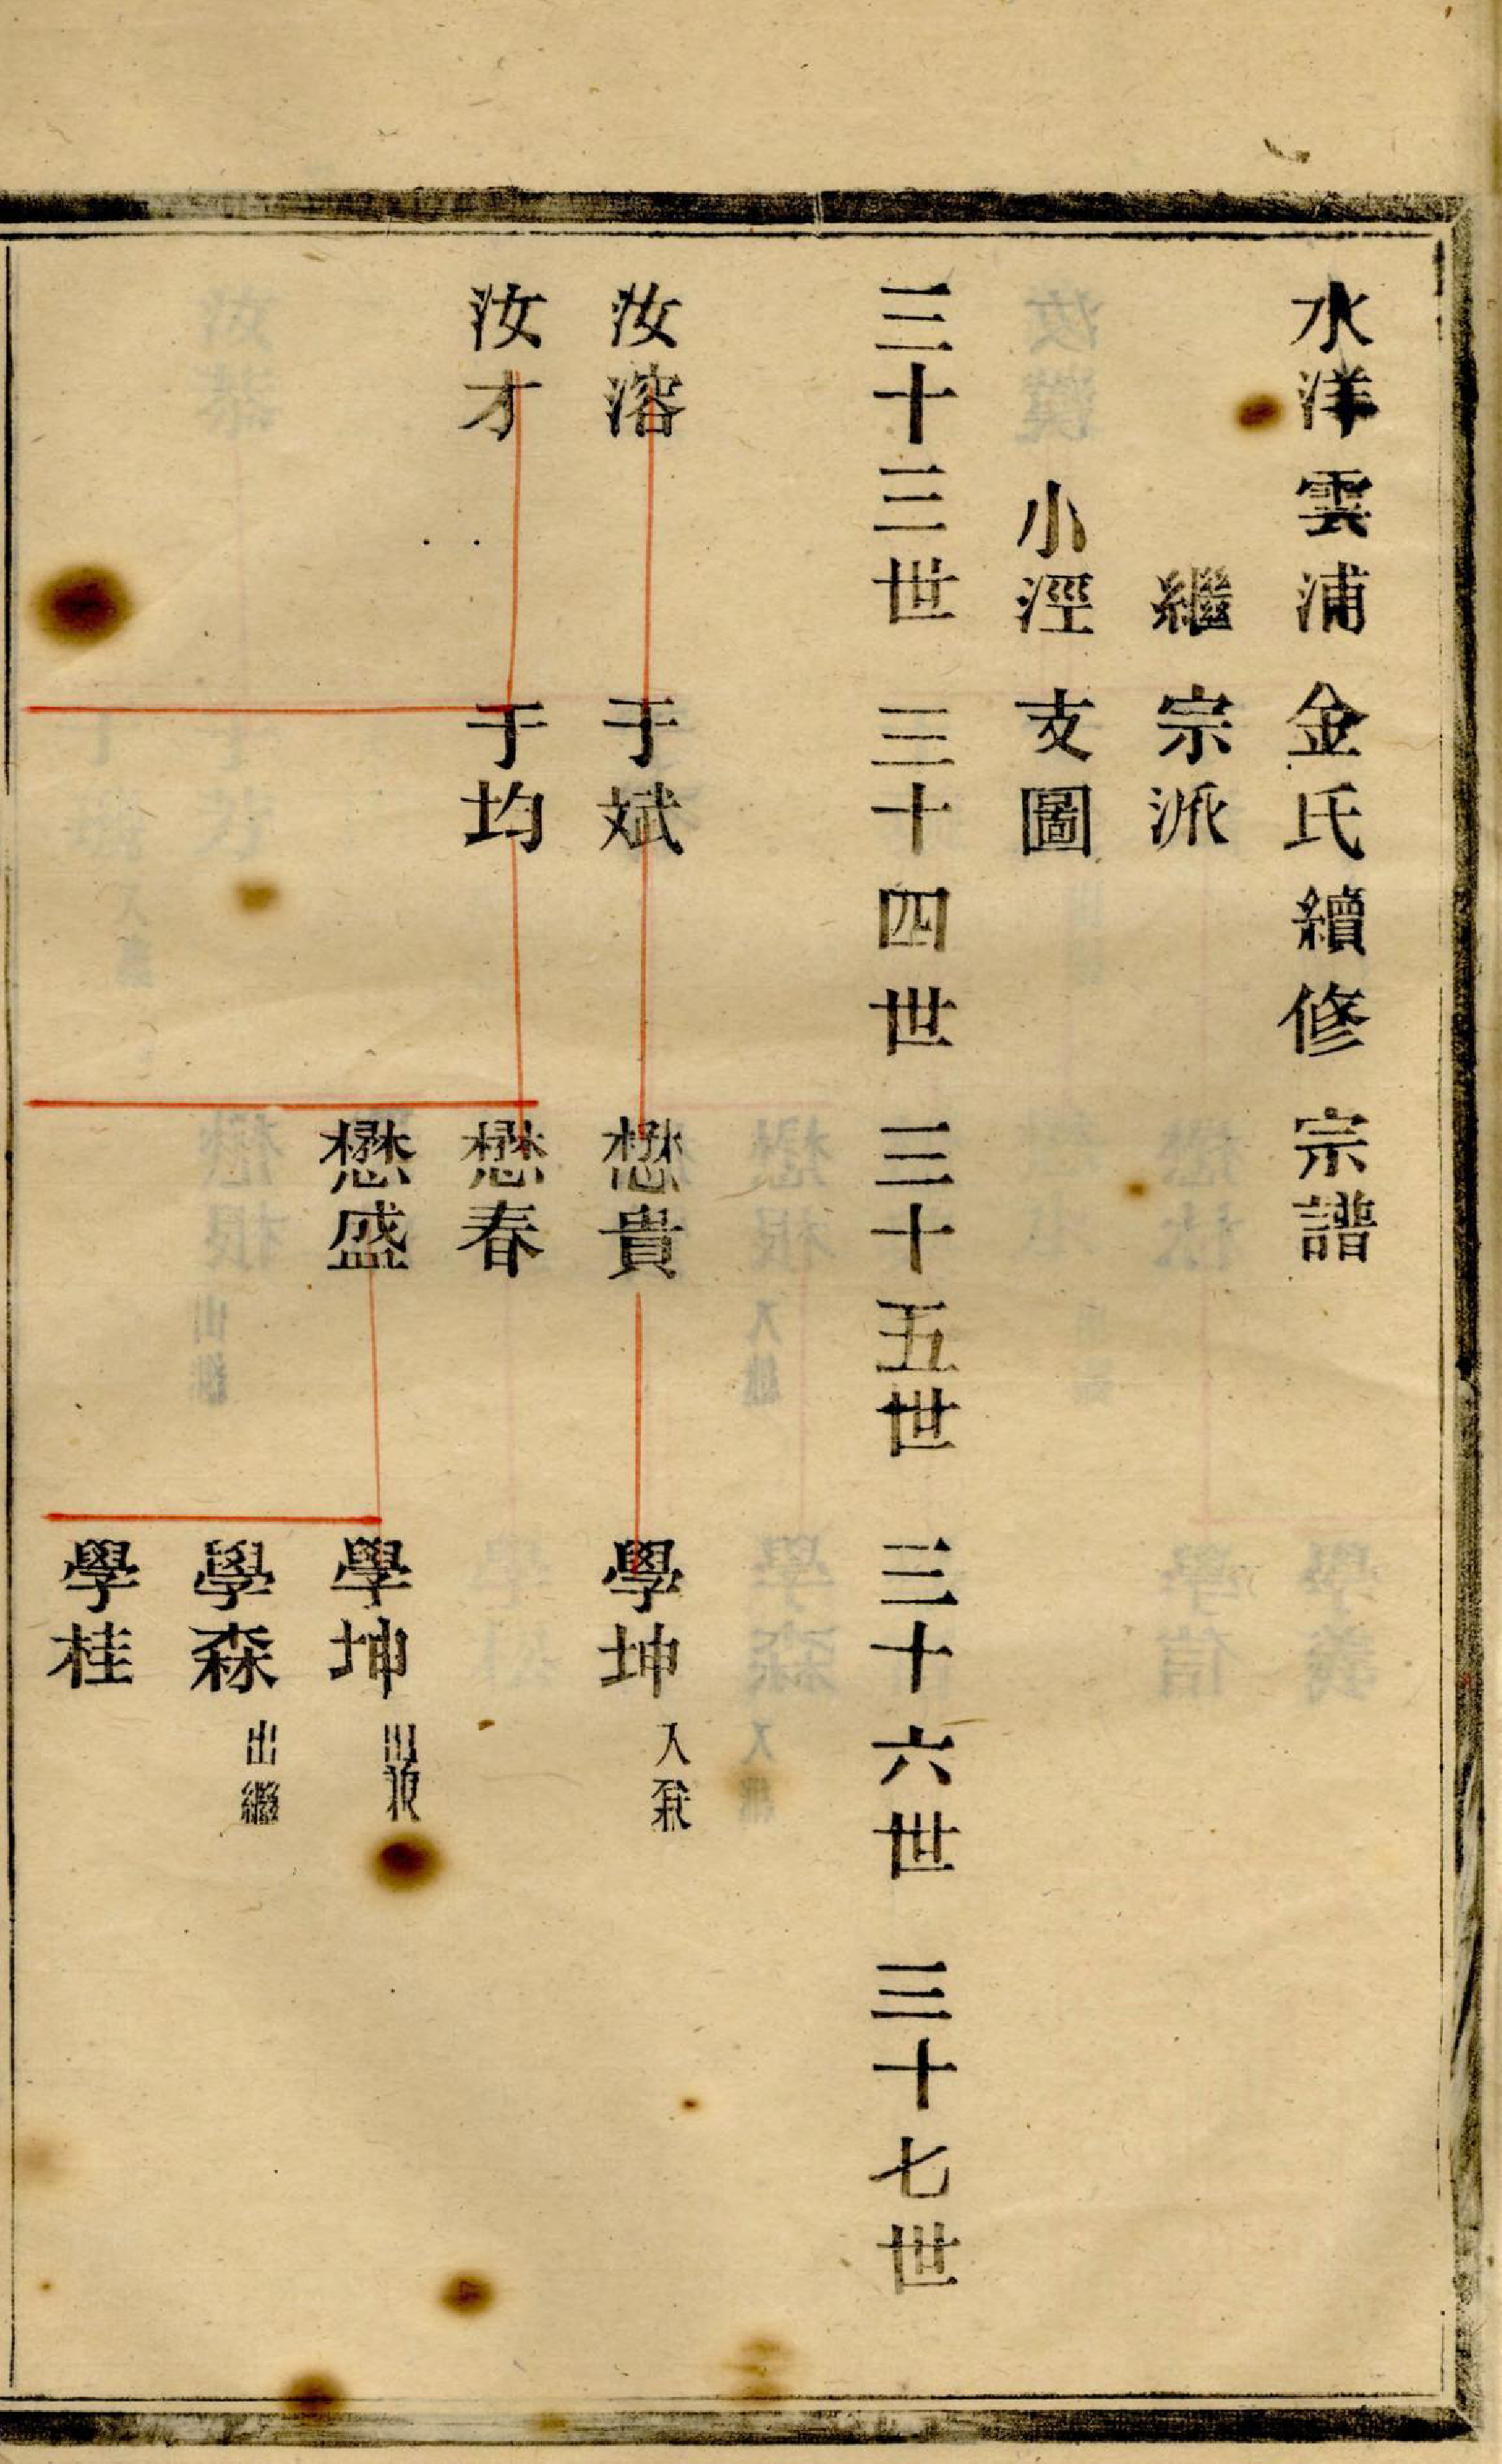 水洋雲浦金氏續修宗譜
繼宗派
小涇支圖
三十三世 三十四世 三十五世 三十六世 三十七世
汝溶 于斌 懋貴 學坤 入
汝才 于均 懋春
懋盛 學坤 出
學森 出繼
學桂